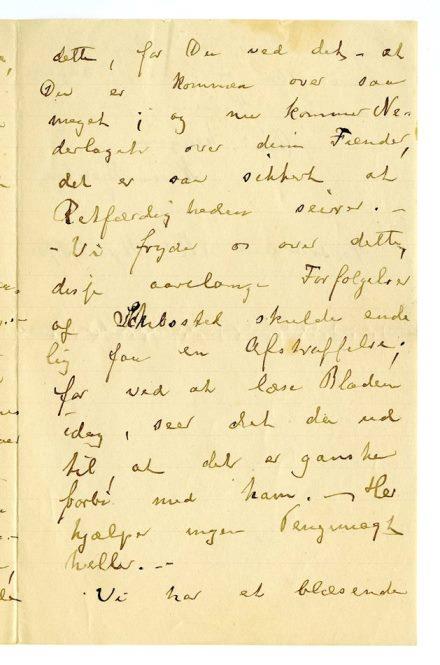 dette, for Du ved det, – at
Du er kommen over saa
meget; og nu kommer Ne-
derlaget over dine Fiender,
det er saa sikkert at
Retfærdigheden seirer. –
– Vi fryder os over dette,
disse aarelange Forfølgelser
af Schibsted skulde ende
lig faa en Afstraffelse;
for ved at læse Bladene
idag, seer det da ud
til, at det er ganske
forbi med ham. – Her
hjælper ingen Pengemagt
heller. –
Vi har et blæsende